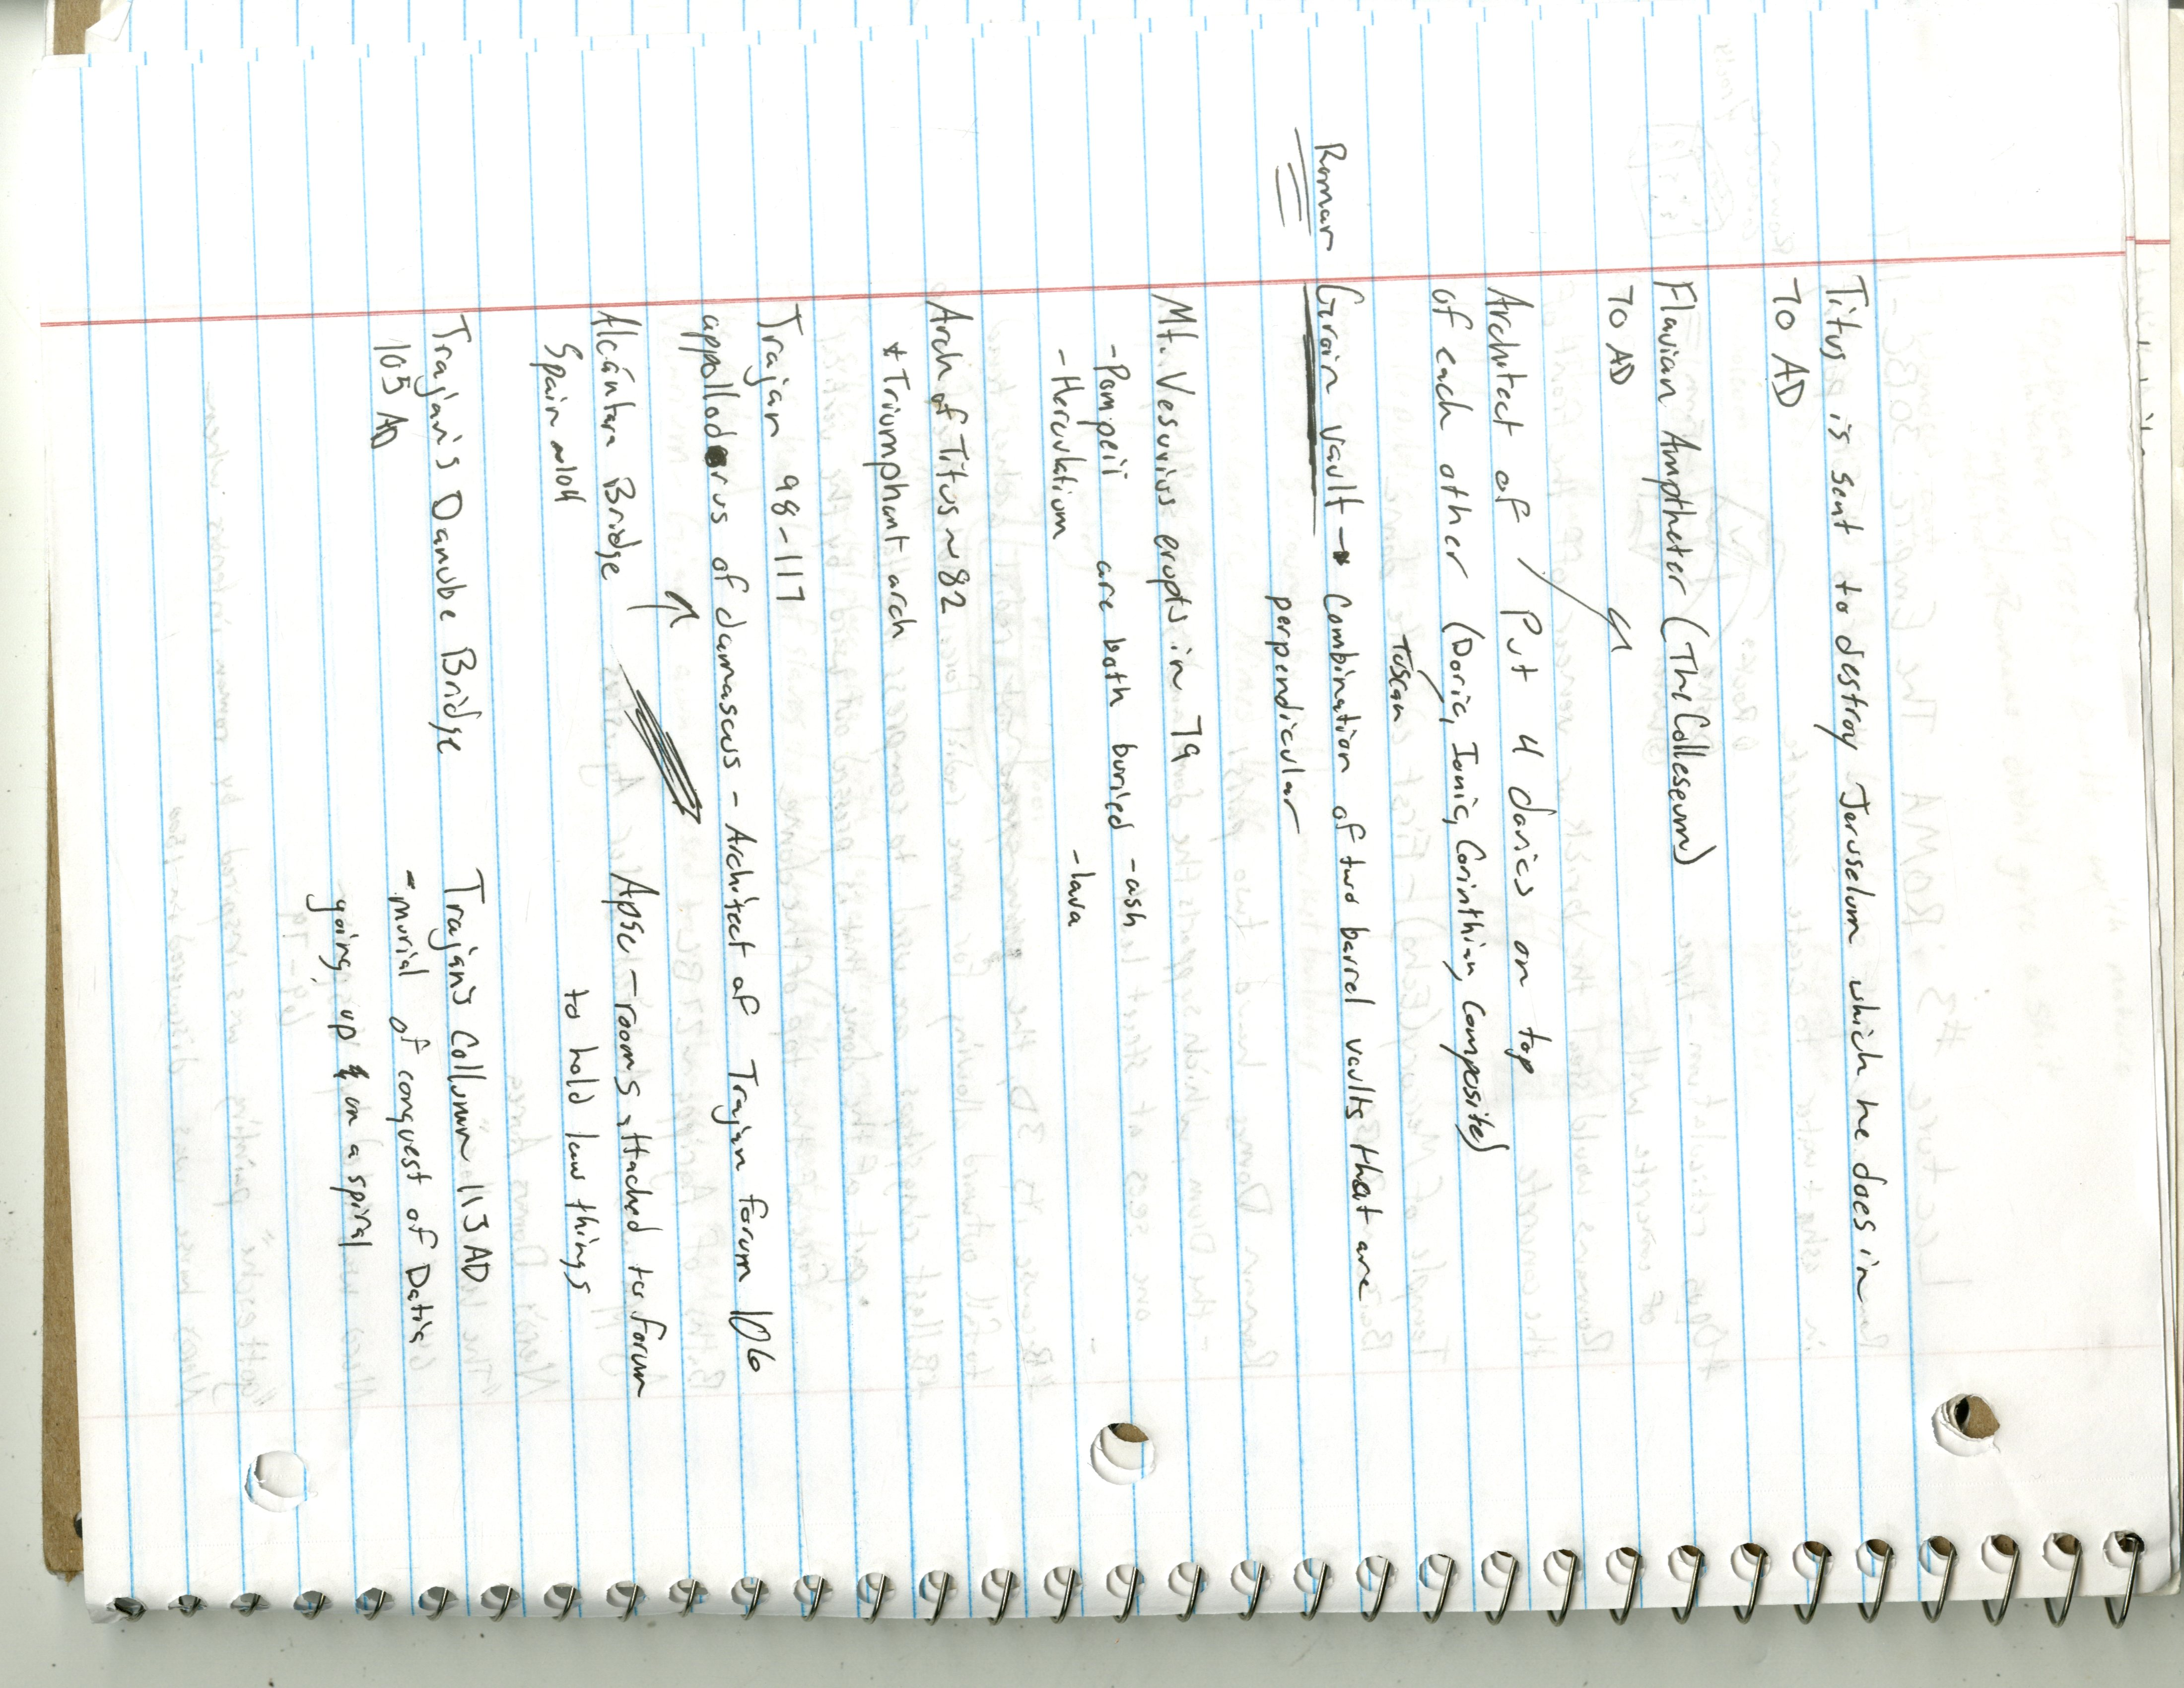 Titus is sent to destroy Jeruselum which he does in
70 AD
Flavian Amptheter (The Colleseum)
70 AD
Architect of / Put 4 dorics on top
of each other (Doric, Ionic, Corinthian, Composite)
Tuscan
Roman Groin vault → Combination of two barrel vaults that are
perpendicular
Mt. Vesuvius erupts in 79
-Pompeii are both buried -ash
-Herculatium -lava
Arch of Titus ~ 82
* Triumphant arch
Trajan 98-117
appollodorus of damascus - Architect of Trajan forum 106
Alcántara Bridge
Spain ~104
Apse - rooms attached to forum
to hold law things
Trajan's Danube Bridge
105 AD
Trajans Collumn 113 AD
-murial of conquest of Datia
going up in a spiral